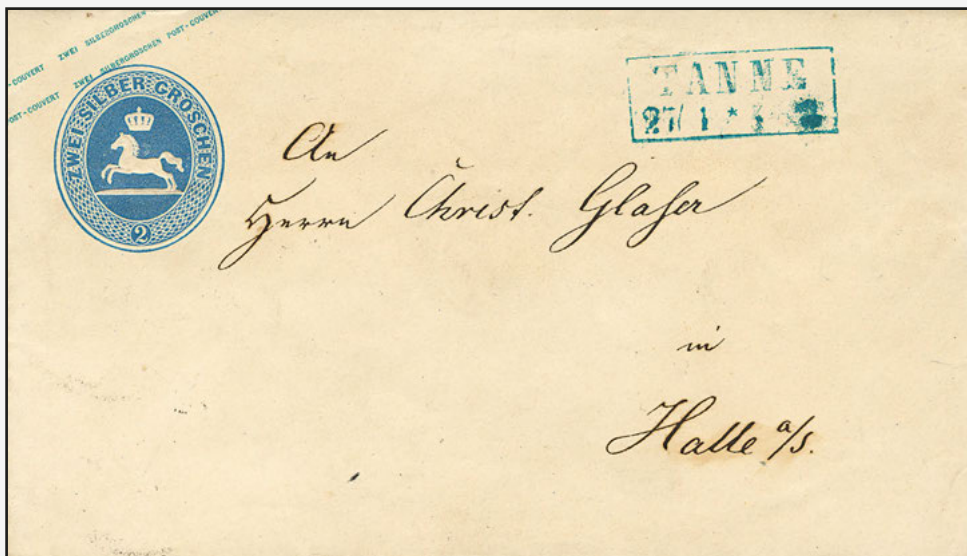 POST-COUVERT ZWEI SILBERGROSCHEN
POST-COUVERT ZWEI SILBERGROSCHEN POST-COUVERT
ZWEI SILBER GROSCHEN
2
TANNE
27/1 *
An
Herrn Christ. Glaser
in
Halle a/S.